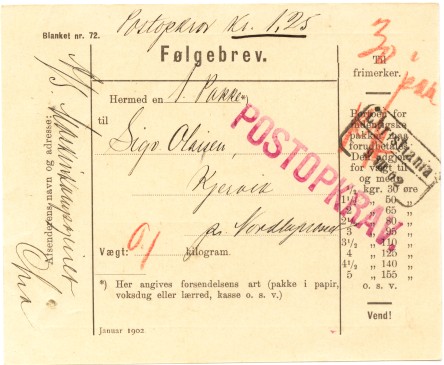 Blanket nr. 72.
Postopkrav Kr. 1,25
Følgebrev.
Til
frimerker.
30
Hermed en 1 Pakke *)
til
Kjervik
POSTOPKRAV.
Vægt: 0,1 kilogram.
*) Her angives forsendelsens art (pakke i papir,
voksdug eller lærred, kasse o. s. v.)
Januar 1902
Afsenderens navn og adresse:
Portoen for
indenlandske
pakker maa
forudbetales.
Den udgjør
for vægt til
og med
1/2 kgr. 30 øre
1 1/2 „ 50 „
2 „ 65 „
2 1/2 „ 80 „
3 „ 95 „
3 1/2 „ 110 „
4 „ 125 „
4 1/2 „ 140 „
5 „ 155 „
o. s. v.
Vend!